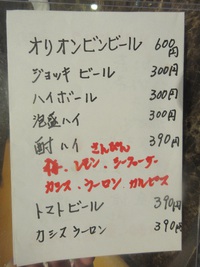 オリオンビンビール 600円
ジョッキ ビール 300円
ハイボール 300円
泡盛ハイ 300円
酎ハイ 390円
さんぴん
梅.レモン.シークヮーサー
カシス.ウーロン カルピス
トマトビール 390円
カシスウーロン 390円